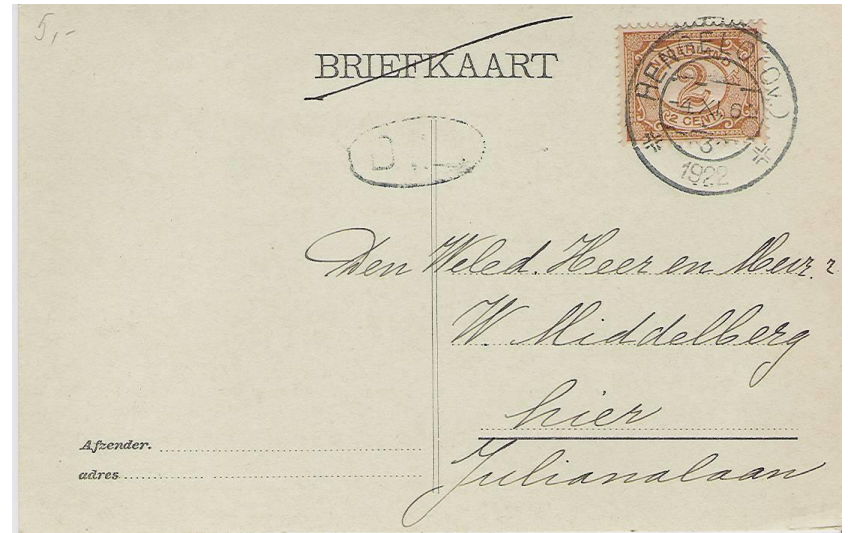 5,-
BRIEFKAART
NEDERLAND
2
2 CENT
HENGELO (OV.)
1922
D
Den Weled. Heer en Mevr.
W. Middelberg
hier
Julianalaan
Afzender.
adres